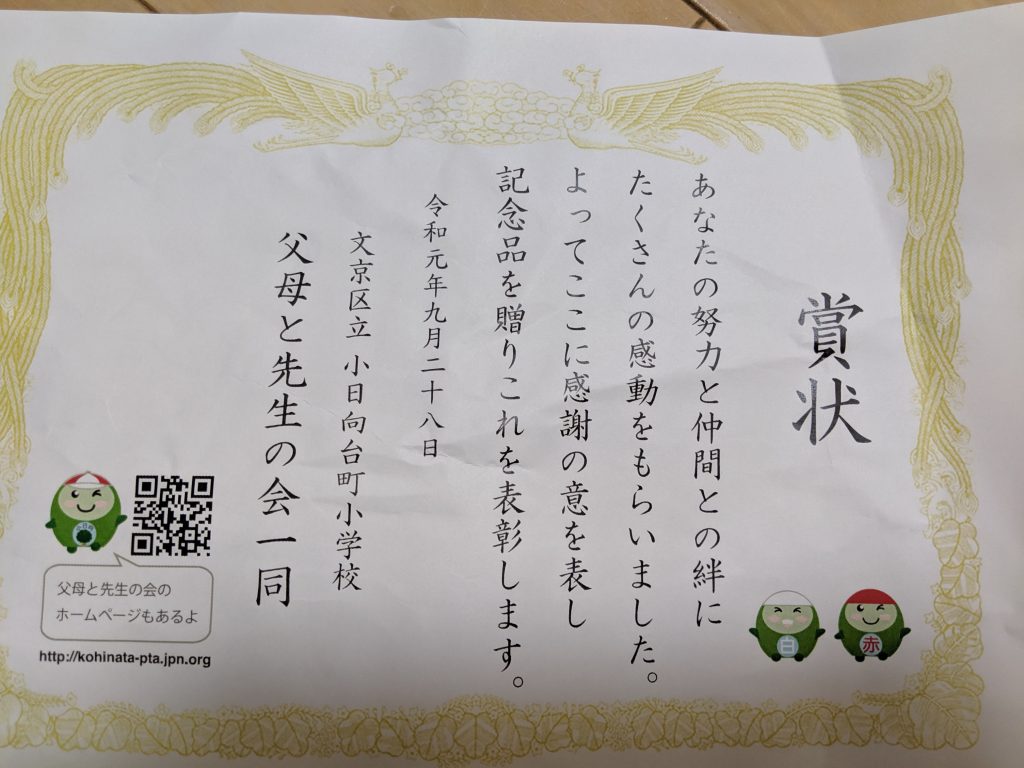 賞状
あなたの努力と仲間との絆に
たくさんの感動をもらいました。
よってここに感謝の意を表し
記念品を贈りこれを表彰します。
令和元年九月二十八日
文京区立 小日向台町小学校
父母と先生の会一同
白
赤
父母と先生の会の
ホームページもあるよ
http://kohinata-pta.jpn.org